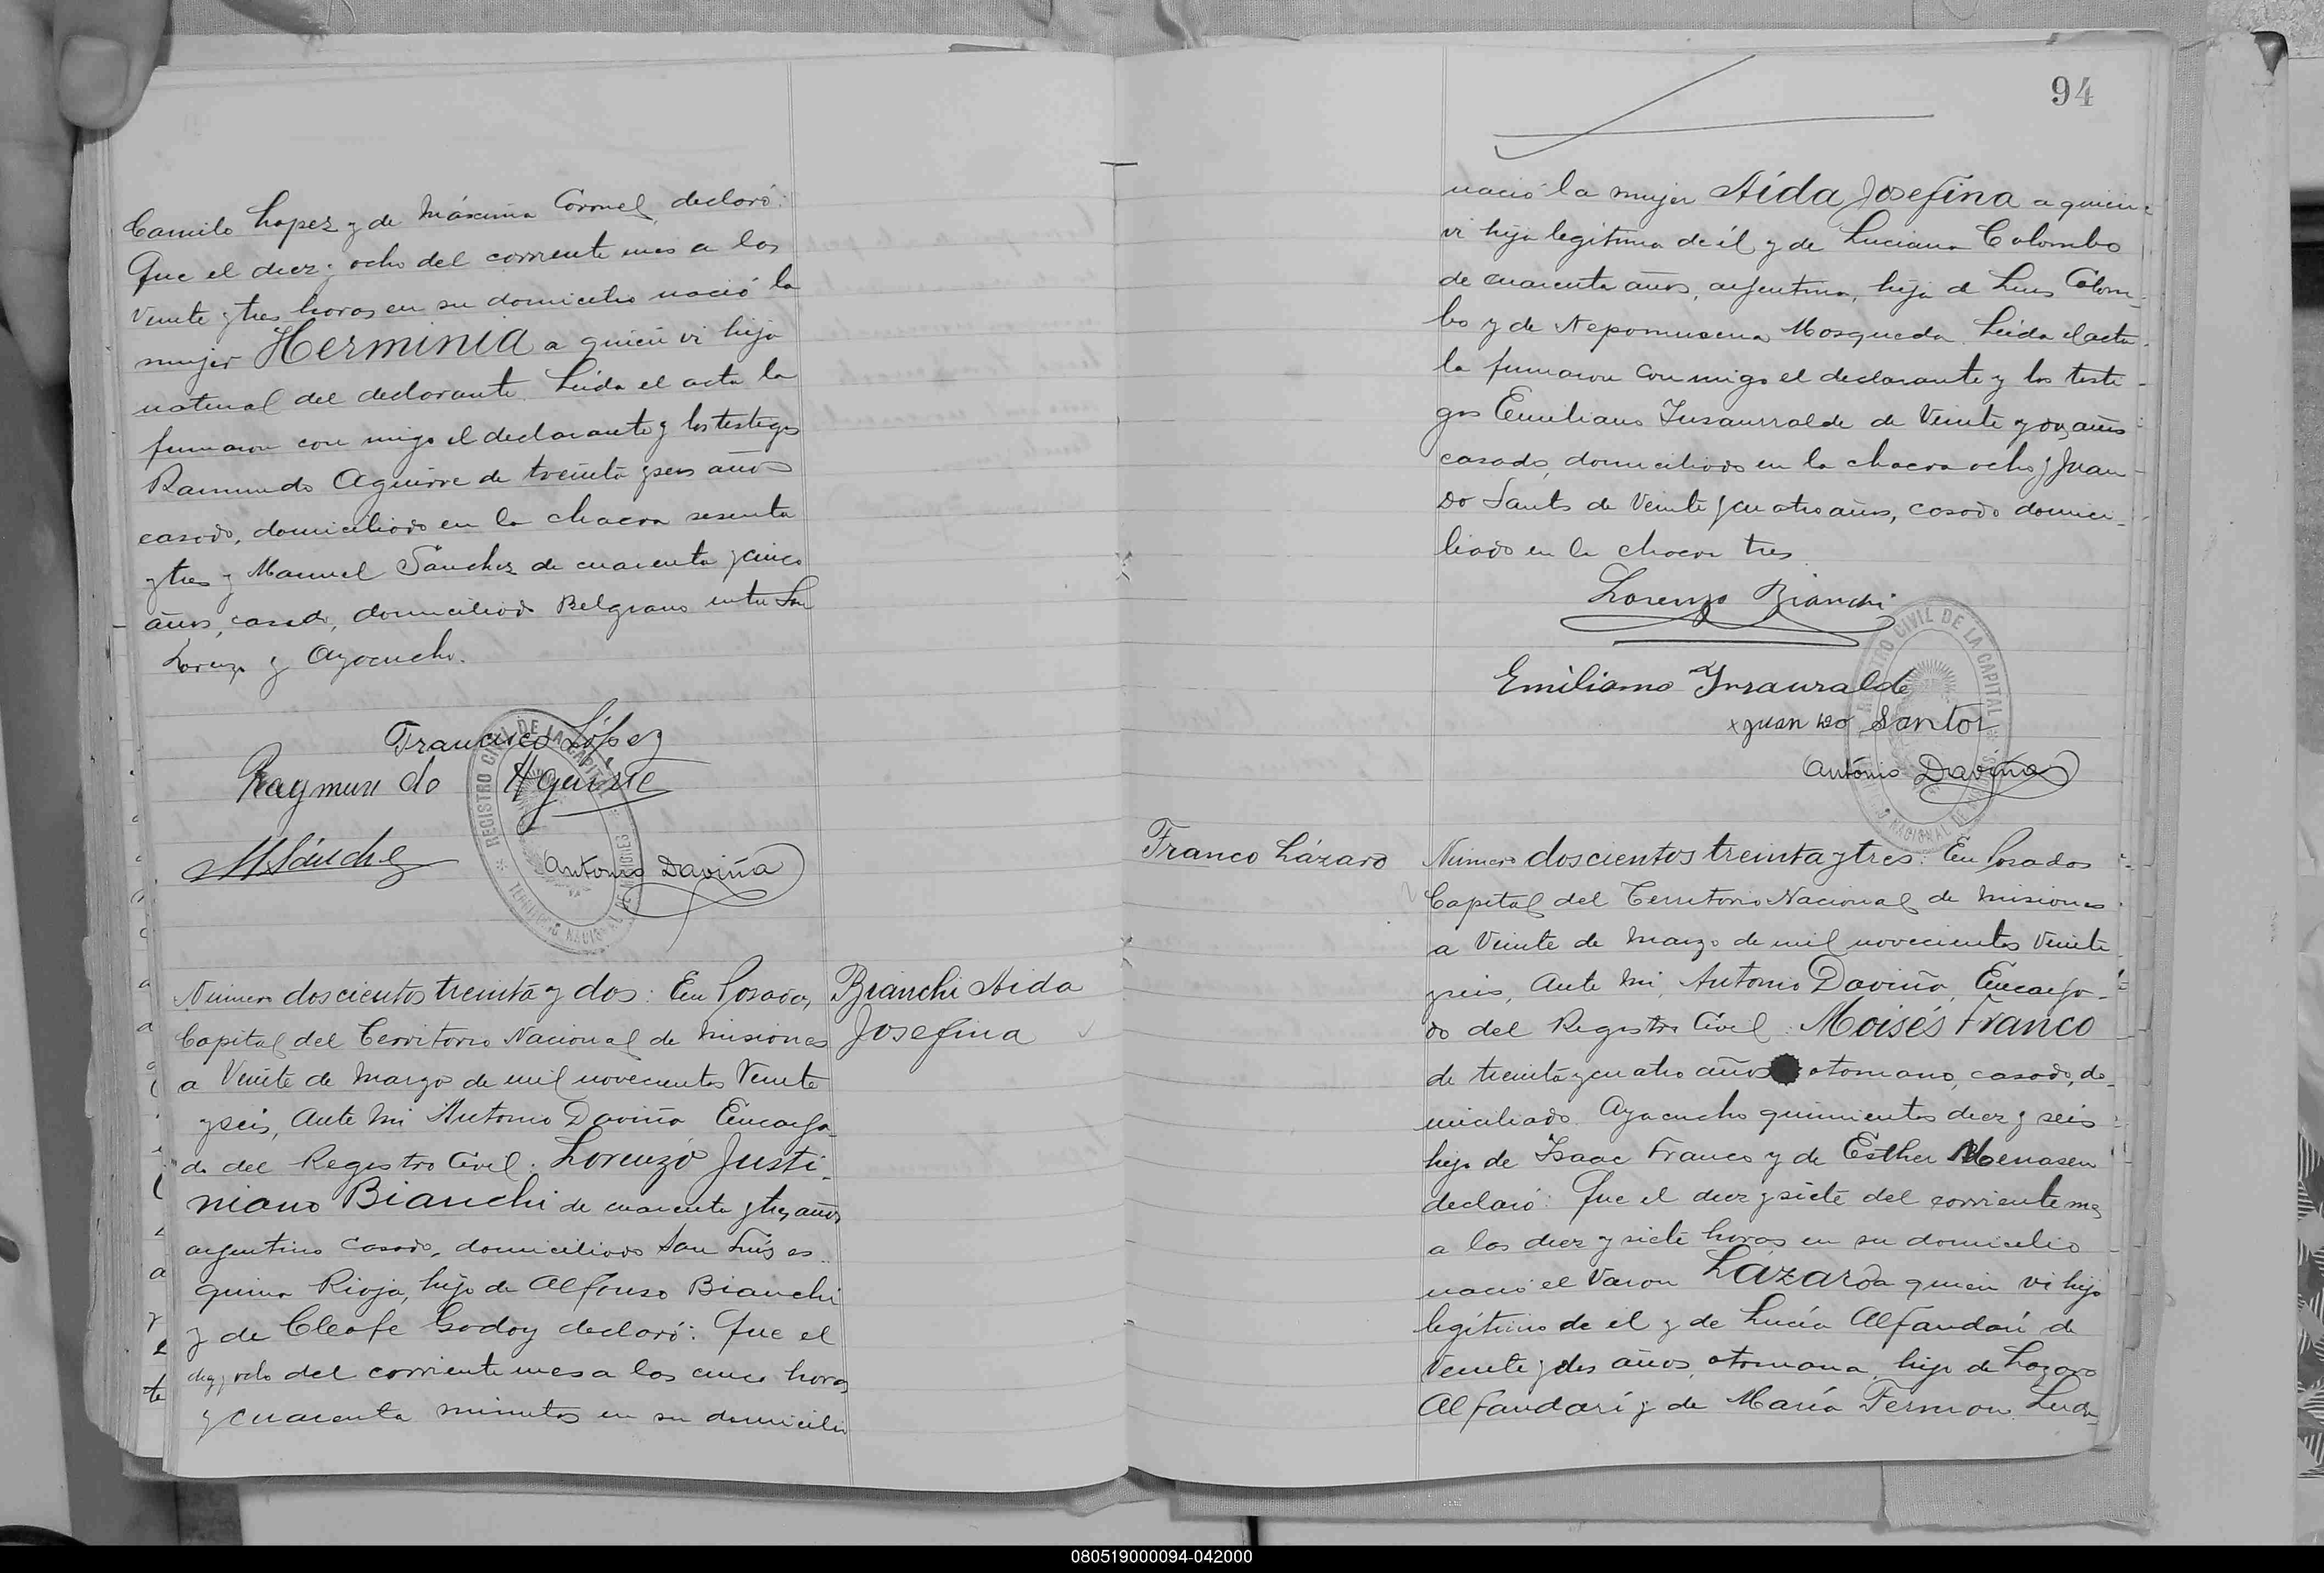 Camilo Lopez y de Máxima Coronel, declaró:
Que el diez y ocho del corriente mes a las
veinte y tres horas en su domicilio nació la
mujer Herminia a quien vi hija
natural del declarante. Leida el acta la
firmaron con migo el declarante y los testigos
Raimundo Aguirre de treinta y seis años
casado, domiciliado en la chacra sesenta
y tres y Manuel Sanchez de cuarenta y cinco
años, casado, domiciliado Belgrano entre San
Lorenzo y Ayacucho.
Francisco López
Raymundo Aguirre
MSánchez
Antonio Daviña
REGISTRO CIVIL DE LA CAPITAL
TERRITORIO NACIONAL DE MISIONES
Bianchi Aida
Josefina
Número doscientos treinta y dos: En Posadas,
Capital del Territorio Nacional de Misiones
a Veinte de Marzo de mil novecientos Veinte
y seis, Ante Mi Antonio Daviña Encarga-
do del Registro Civil: Lorenzo Justi-
niano Bianchi de cuarenta y tres años
argentino casado, domiciliado San Luis es-
quina Rioja, hijo de Alfonso Bianchi
y de Cleofe Godoy declaró: Que el
diez y ocho del corriente mes a las cinco horas
y cuarenta minutos en su domicilio
94
nació la mujer Aida Josefina a quien
vi hija legitima de él y de Luciana Colombo
de cuarenta años, argentina, hija de Luis Colom-
bo y de Nepomusena Mosqueda. Leida el acta
la firmaron con migo el declarante y los testi-
gos Emiliano Insaurralde de Veinte y dos años
casado, domiciliado en la chacra ocho y Juan
Do Santos de Veinte y cuatro años, casado domici-
liado en la chacra tres
Lorenzo Bianchi
Emiliano Insauralde
Juan Do Santos
Antonio Daviña
REGISTRO CIVIL DE LA CAPITAL
TERRITORIO NACIONAL DE MISIONES
Franco Lázaro
Número doscientos treinta y tres: En Posadas
Capital del Territorio Nacional de Misiones
a Veinte de Marzo de mil novecientos Veinte
y seis, Ante Mi, Antonio Daviña, Encarga-
do del Registro Civil: Moisés Franco
de treinta y cuatro años otomano, casado, do-
miciliado Ayacucho quinientos diez y seis
hijo de Isaac Franco y de Esther Menasen
declaró: Que el diez y siete del corriente mes
a las diez y siete horas en su domicilio
nació el Varon Lázaro a quien vi hijo
legítimo de el y de Lucía Alfandarí de
Veinte y dos años, otomana, hija de Lazaro
Alfandarí y de María Fermon. Leida
080519000094-042000